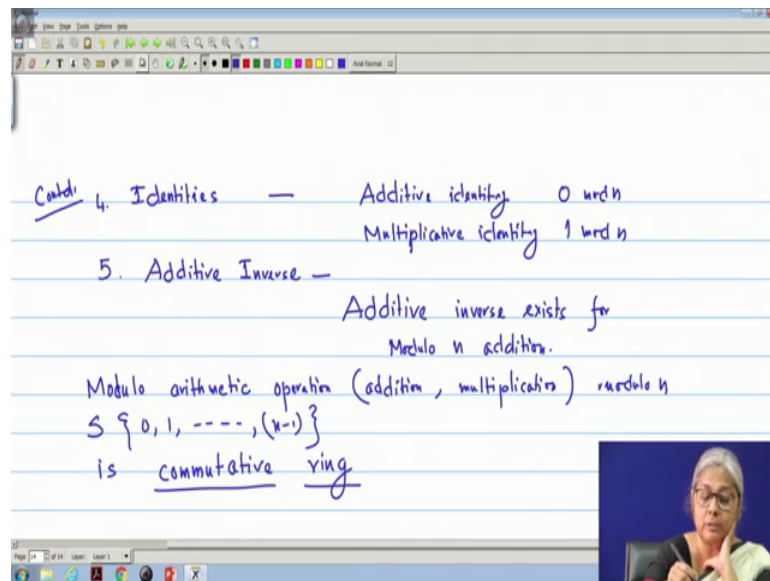 View Page Tools Options Help
Arial Normal 12
Contd. 4. Identities — Additive identity 0 mod n
Multiplicative identity 1 mod n
5. Additive Inverse —
Additive inverse exists for
Modulo n addition.
Modulo arithmetic operation (addition, multiplication) modulo n
S { 0, 1, ----, (n-1) }
is commutative ring
Page 14 14 of 14 Layer: Layer 1